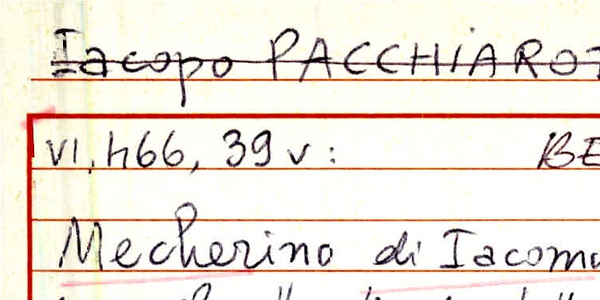 Iacopo PACCHIAROT
VI, 466, 39 v: BE
Mecherino di Iacomo